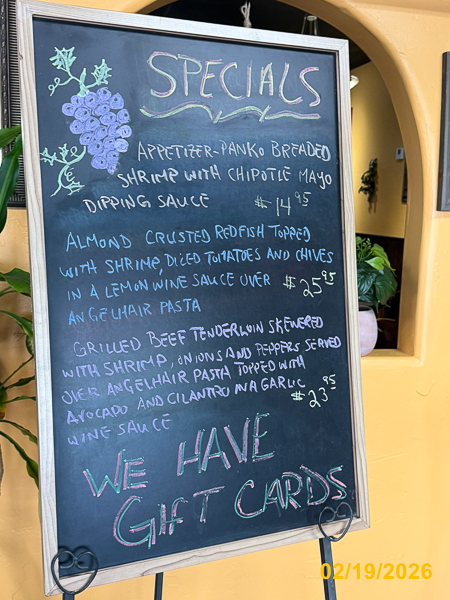 SPECIALS
APPETIZER-PANKO BREADED
SHRIMP WITH CHIPOTLE MAYO
DIPPING SAUCE $14.95
ALMOND CRUSTED REDFISH TOPPED
WITH SHRIMP, DICED TOMATOES AND CHIVES
IN A LEMON WINE SAUCE OVER $25.95
ANGELHAIR PASTA
GRILLED BEEF TENDERLOIN SKEWERED
WITH SHRIMP, ONIONS AND PEPPERS SERVED
OVER ANGELHAIR PASTA TOPPED WITH
AVOCADO AND CILANTRO IN A GARLIC $23.95
WINE SAUCE
WE HAVE
GIFT CARDS
02/19/2026